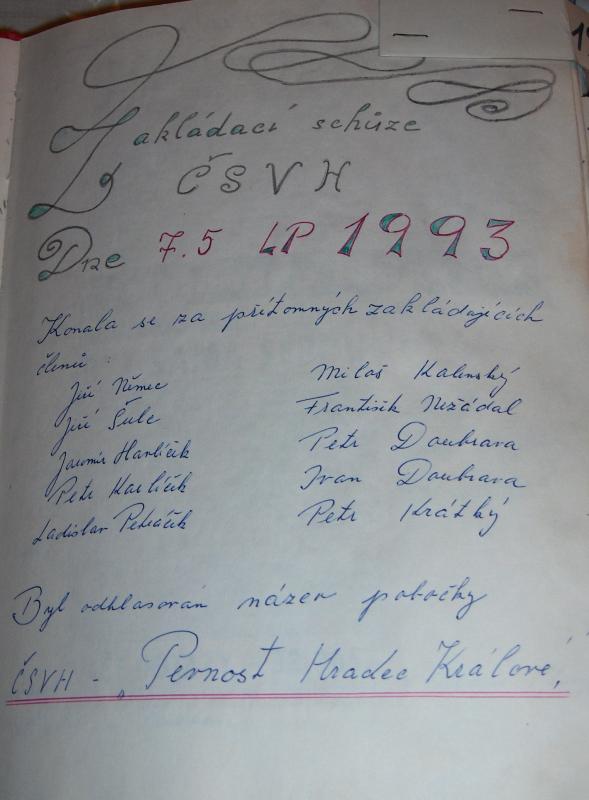 Zakládací schůze
ČSVH
Dne 7.5 LP 1993
Konala se za přítomných zakládajících
členů :
Jiří Němec
Jiří Šulc
Jaromír Havlíček
Petr Karlíček
Ladislav Petráček
Miloš Kalenský
František Nežádal
Petr Doubrava
Ivan Doubrava
Petr Krátký
Byl odhlasován název pobočky
ČSVH - „Pevnost Hradec Králové"